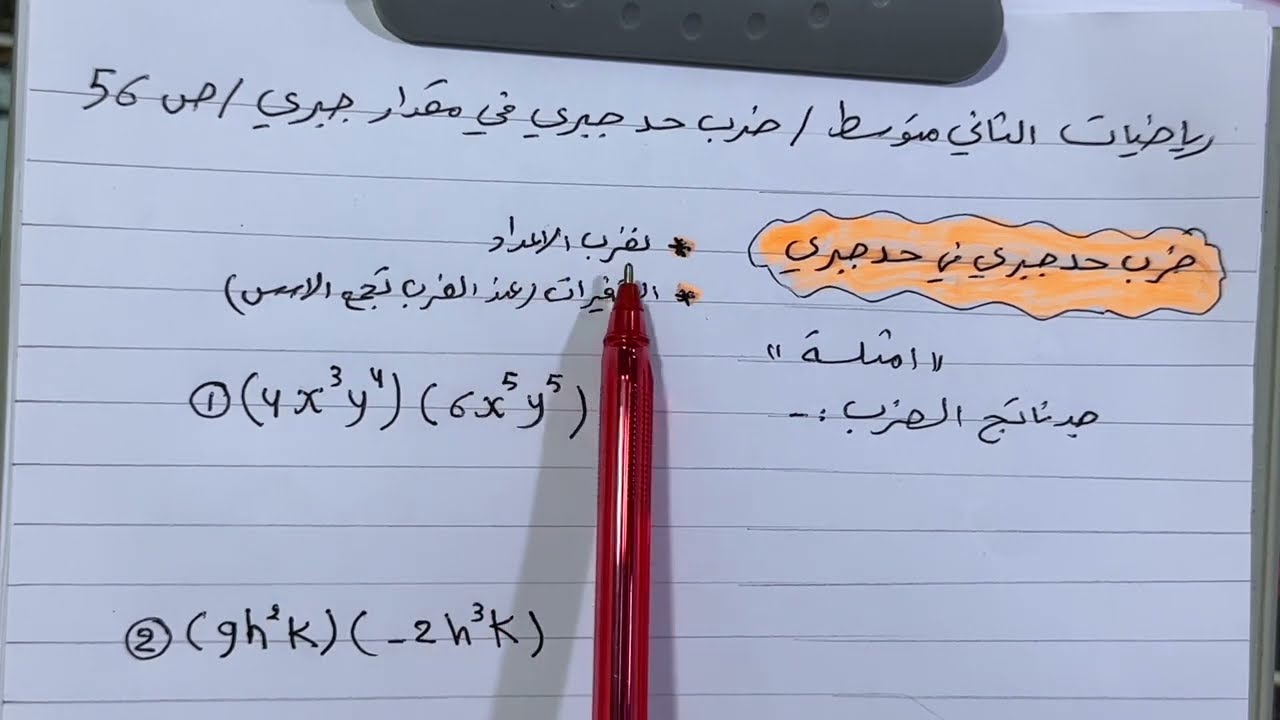 رياضيات الثاني متوسط / ضرب حد جبري في مقدار جبري / ص 56
ضرب حد جبري في حد جبري
* نضرب الاعداد
* المتغيرات (عند الضرب تجمع الاسس)
«امثلة»
جد ناتج الضرب :-
① (4x³y⁴)(6x⁵y⁵)
② (9h²k)(-2h³k)